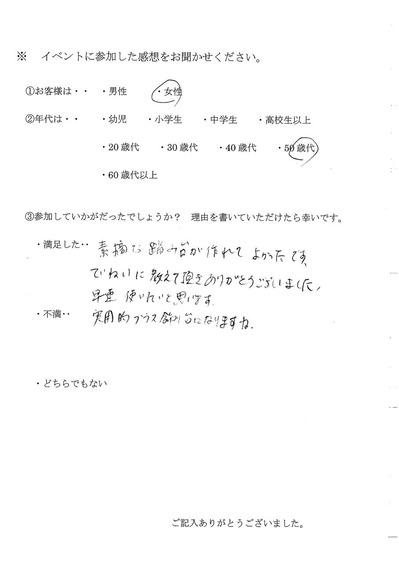 ※ イベントに参加した感想をお聞かせください。
①お客様は・・ ・男性 ・女性
②年代は・・ ・幼児 ・小学生 ・中学生 ・高校生以上
・20歳代 ・30歳代 ・40歳代 ・50歳代
・60歳代以上
③参加していかがだったでしょうか？ 理由を書いていただけたら幸いです。
・満足した・・ 素敵な踏み台が作れてよかったです、
ていねいに教えて頂きありがとうございました。
早速使いたいと思います。
・不満・・ 実用的プラス飾り台になりますね。
・どちらでもない
ご記入ありがとうございました。